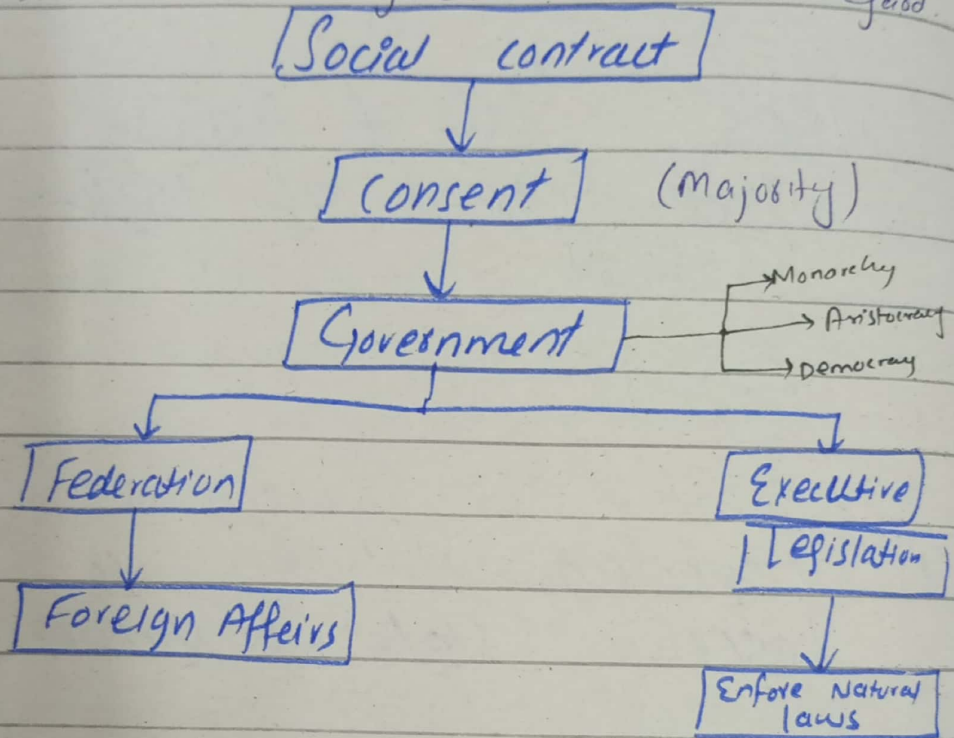 good.
Social contract
Consent (Majority)
Monarchy
Government
Aristocracy
Democracy
Federation
Executive
Legislation
Foreign Affeirs
Enfore Natural
laws